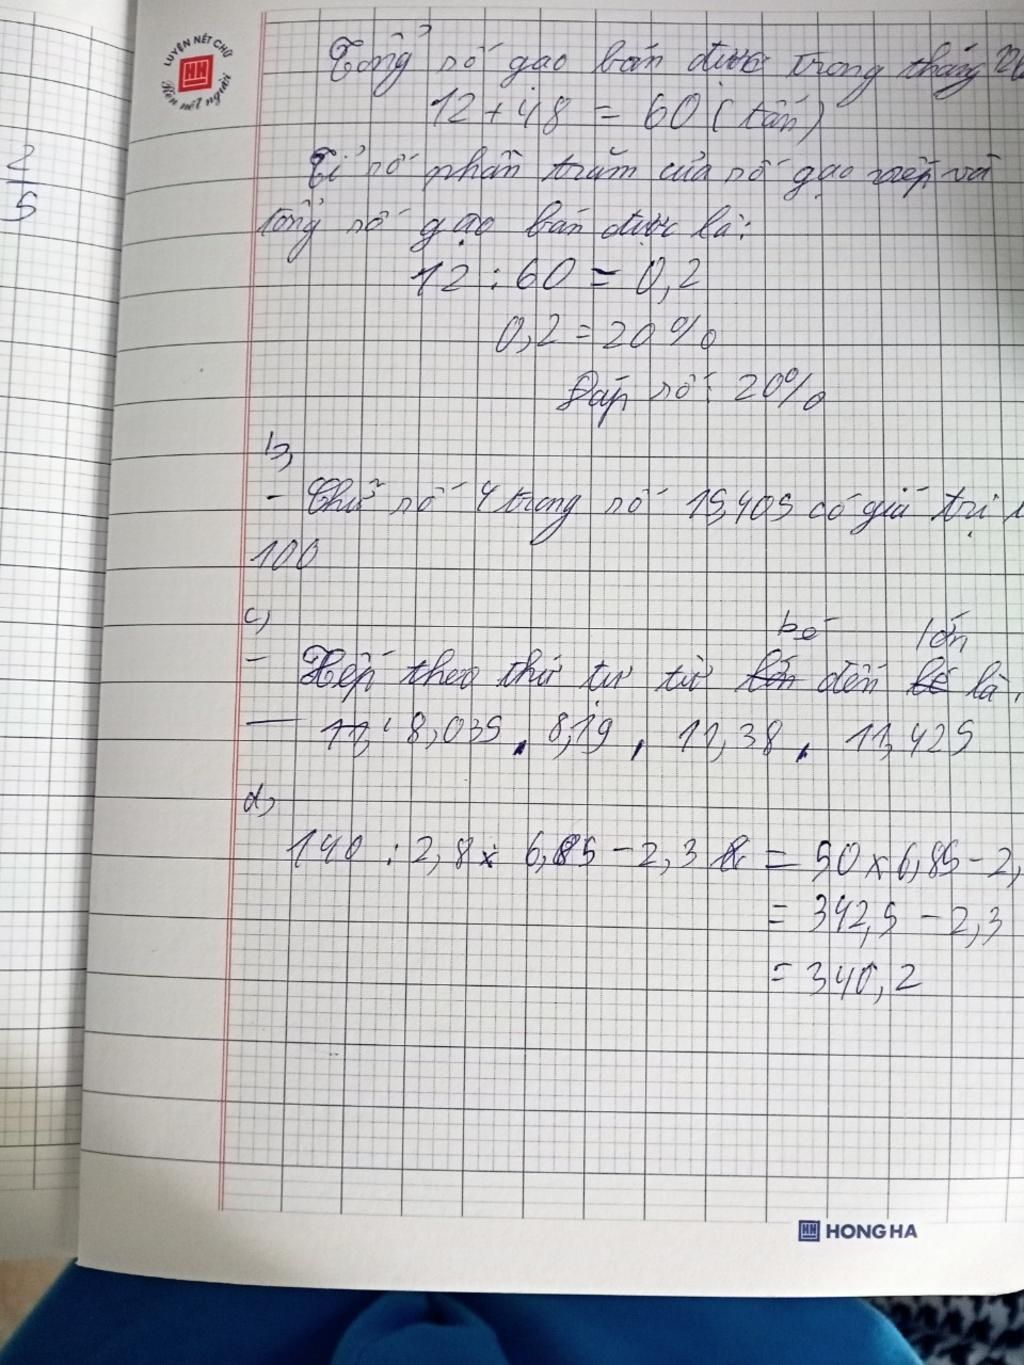 LUYỆN NÉT CHỮ
HH
Rèn nết người
2
5
Tổng số gạo bán được trong tháng
12 + 48 = 60 (tấn)
Tỉ số phần trăm của số gạo nếp và
tổng số gạo bán được là:
12 : 60 = 0,2
0,2 = 20%
Đáp số: 20%
b,
- Chữ số 4 trong số 15,405 có giá trị
100
c,
bé lớn
- Xếp theo thứ tự từ lớn đến bé là
- 11, 8,035, 8,19, 11,38, 11,425
d,
140 : 2,8 x 6,85 - 2,3 = 50 x 6,85 - 2,
= 342,5 - 2,3
= 340,2
HH HONG HA